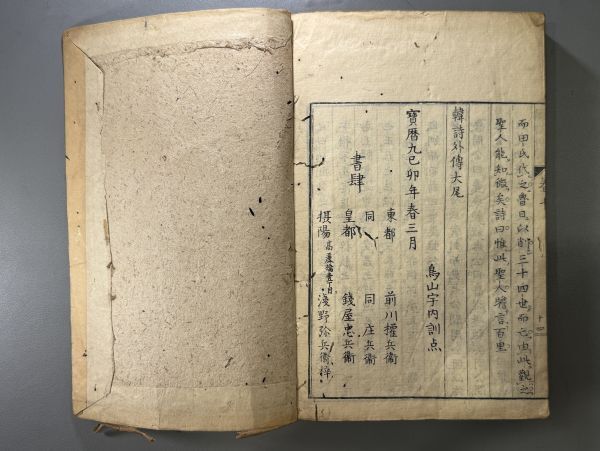 而田氏代之魯日以削三十四世而亡由此觀之
聖人能知微矣詩曰惟此聖人瞻言百里
韓詩外傳大尾
鳥山宇内訓点
寶暦九己卯年春三月
書肆
東都 前川權兵衞
同 同 庄兵衞
皇都 錢屋忠兵衞
摂陽 淺野弥兵衞梓